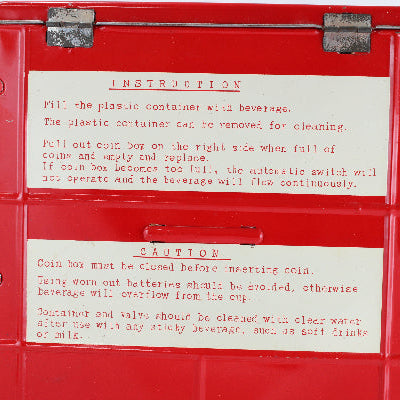 INSTRUCTION
Fill the plastic container with beverage.
The plastic container can be removed for cleaning.
Pull out coin box on the right side when full of
coins and empty and replace.
If coin box becomes too full, the automatic switch will
not operate and the beverage will flow continuously.
CAUTION
Coin box must be closed before inserting coin.
Using worn out batteries should be avoided, otherwise
beverage will overflow from the cup.
Container and valve should be cleaned with clear water
after use with any sticky beverage, such as soft drinks
or milk.